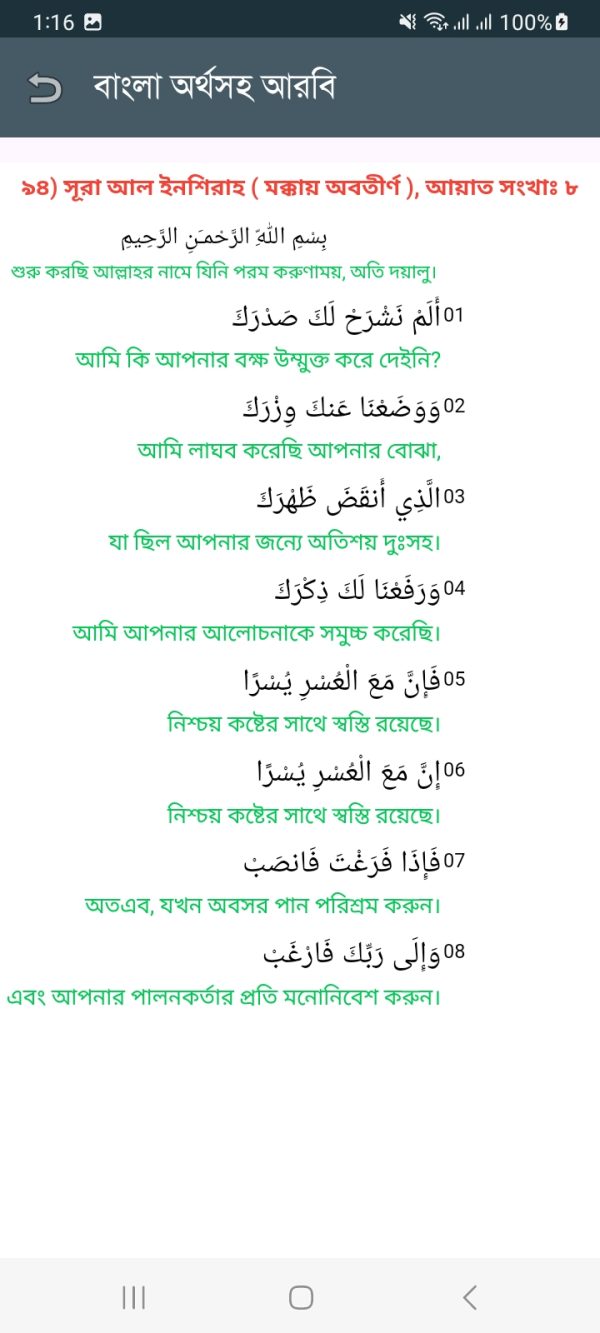 1:16 100%
বাংলা অর্থসহ আরবি
৯৪) সূরা আল ইনশিরাহ ( মক্কায় অবতীর্ণ ), আয়াত সংখাঃ ৮
بِسْمِ اللّهِ الرَّحْمـَنِ الرَّحِيمِ
শুরু করছি আল্লাহর নামে যিনি পরম করুণাময়, অতি দয়ালু।
01أَلَمْ نَشْرَحْ لَكَ صَدْرَكَ
আমি কি আপনার বক্ষ উম্মুক্ত করে দেইনি?
02وَوَضَعْنَا عَنكَ وِزْرَكَ
আমি লাঘব করেছি আপনার বোঝা,
03الَّذِي أَنقَضَ ظَهْرَكَ
যা ছিল আপনার জন্যে অতিশয় দুঃসহ।
04وَرَفَعْنَا لَكَ ذِكْرَكَ
আমি আপনার আলোচনাকে সমুচ্চ করেছি।
05فَإِنَّ مَعَ الْعُسْرِ يُسْرًا
নিশ্চয় কষ্টের সাথে স্বস্তি রয়েছে।
06إِنَّ مَعَ الْعُسْرِ يُسْرًا
নিশ্চয় কষ্টের সাথে স্বস্তি রয়েছে।
07فَإِذَا فَرَغْتَ فَانصَبْ
অতএব, যখন অবসর পান পরিশ্রম করুন।
08وَإِلَى رَبِّكَ فَارْغَبْ
এবং আপনার পালনকর্তার প্রতি মনোনিবেশ করুন।